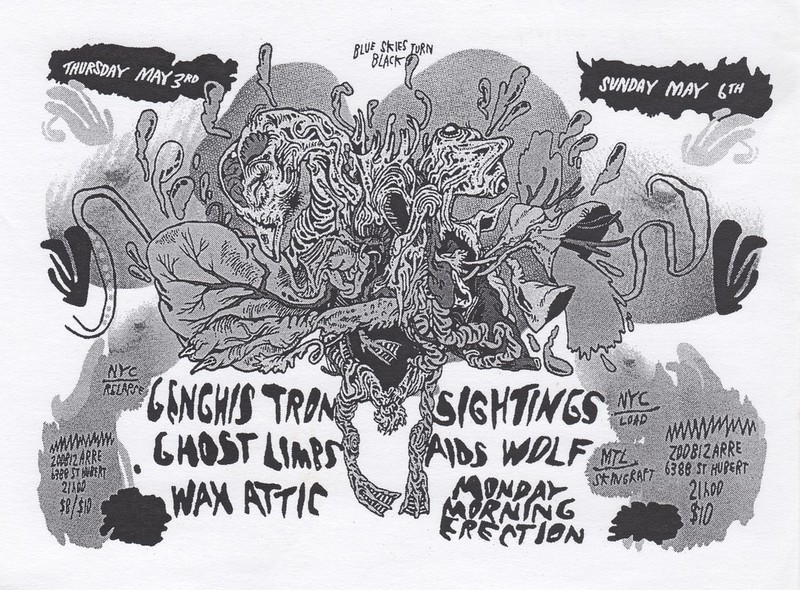 BLUE SKIES TURN
BLACK
THURSDAY MAY 3RD
SUNDAY MAY 6TH
NYC
RELAPSE
GENGHIS TRON
GHOST LIMBS
WAX ATTIC
ZOOBIZARRE
6388 ST HUBERT
21h00
$8/$10
SIGHTINGS
AIDS WOLF
MONDAY
MORNING
ERECTION
NYC
LOAD
MTL
SKINGRAFT
ZOOBIZARRE
6388 ST HUBERT
21h00
$10